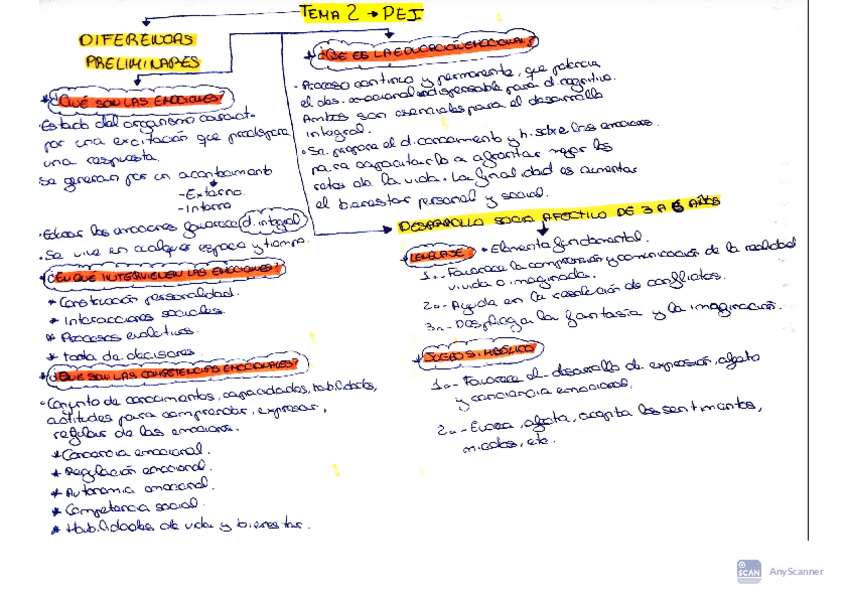 TEMA 2 → PEI
DIFERENCIAS
PRELIMINARES
¿QUÉ SON LAS EMOCIONES?
·Estado del organismo caract-
por una excitación que predispone
una respuesta.
Se generan por un acontecimiento
-Externo
-Interno
·Educar las emociones favorece d. integral
·Se vive en cualquier espacio y tiempo.
¿EN QUÉ INTERVIENEN LAS EMOCIONES?
* Construcción personalidad.
* Interacciones sociales
* Procesos evolutivos.
* toma de decisiones
¿QUÉ SON LAS COMPETENCIAS EMOCIONALES?
·Conjunto de conocimientos, capacidades, habilidades,
actitudes para comprender, expresar,
regular de las emociones.
* Conciencia emocional.
* Regulación emocional.
* Autonomía emocional.
* Competencia social.
* Habilidades de vida y bienestar.
¿QUÉ ES LA EDUCACIÓN EMOCIONAL?
·Proceso continuo y permanente, que potencia
el des. emocional indispensable para el cognitivo.
Ambos son esenciales para el desarrollo
integral.
·Se propone el d. conocimiento y h. sobre las emociones
para capacitarlo a afrontar mejor los
retos de la vida. La finalidad es aumentar
el bienestar personal y social.
DESARROLLO SOCIO AFECTIVO DE 3 A 6 AÑOS
LENGUAJE · Elemento fundamental.
1.- Favorece la comprensión y comunicación de la realidad
vivida o imaginada.
2.- Ayuda en la resolución de conflictos.
3.- Despliega la fantasía y la imaginación.
JUEGO SIMBÓLICO
1.- Favorece el desarrollo de expresión, afecto
y conciencia emocional.
2.- Evoca, afecta, acepta los sentimientos,
miedos, etc.
SCAN AnyScanner